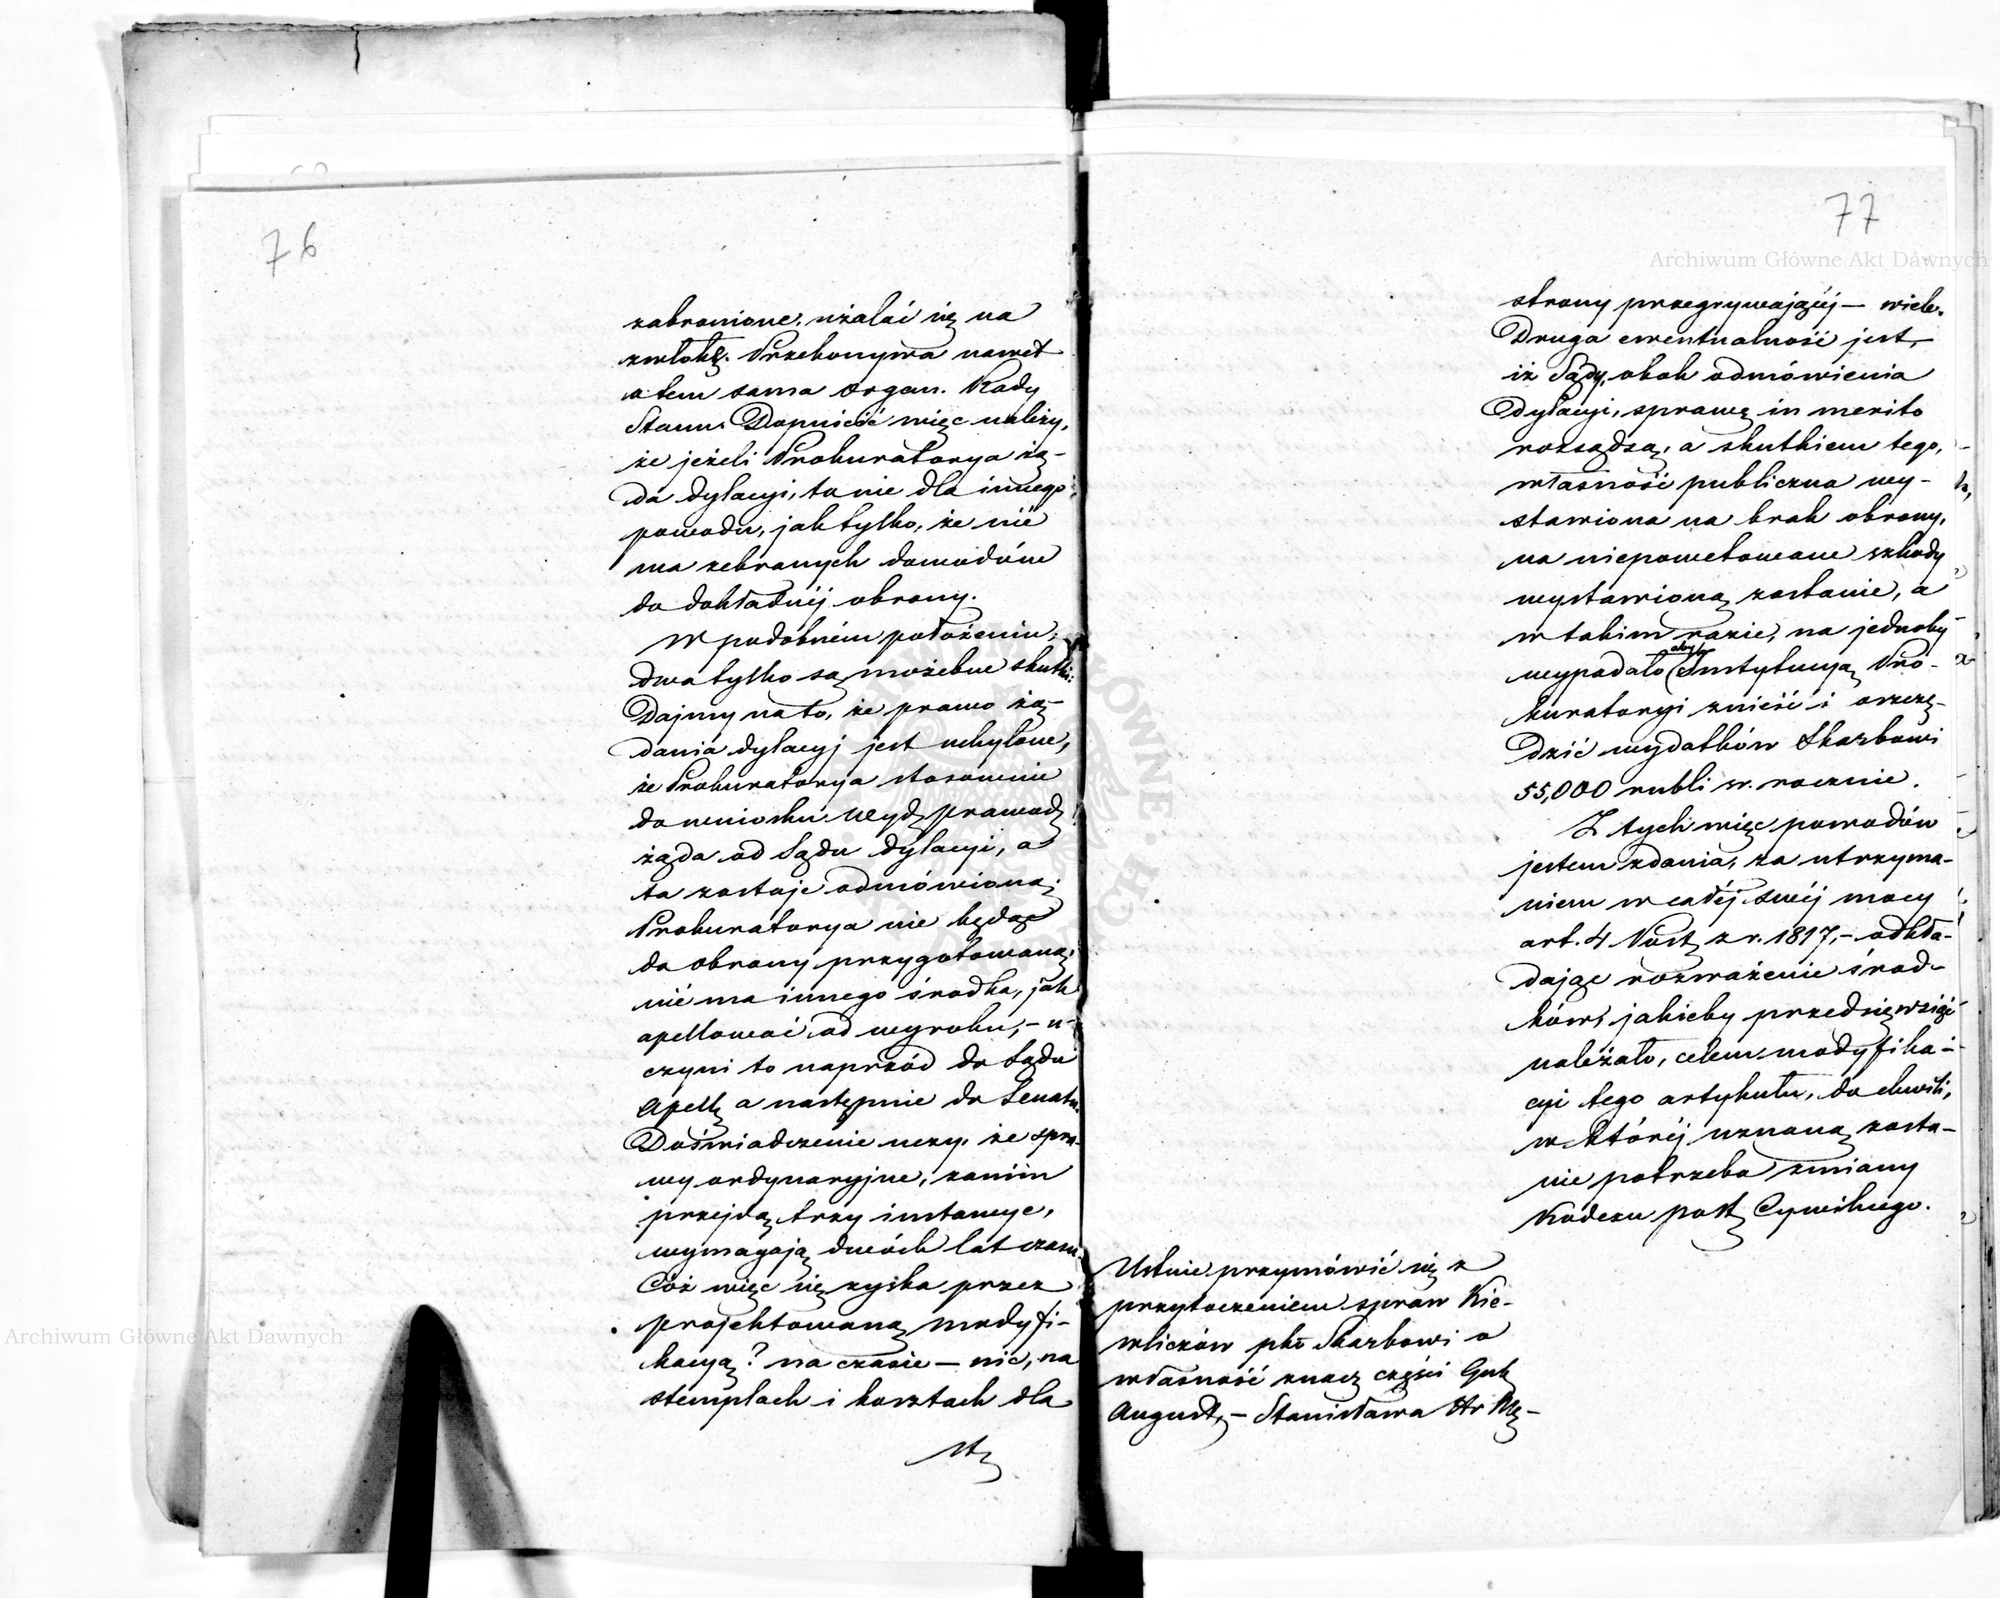 76
zabronione, użalać się na
zwłokę. Przekonywa nawet
o tem sama organ. Rady
Stanu. Dopuścić więc należy,
że jeżeli Prokuratorya żą-
da dylacyi, to nie dla innego
powodu, jak tylko, że nié
ma zebranych dowodów
do dokładnéj obrony.
W podobném położeniu,
dwa tylko są możebne skutki:
Dajmy na to, że prawo żą-
dania dylacyj jest uchylone,
że Prokuratorya stosownie
do wniosku Wydz prawodz
żąda od Sądu dylacyi, a
ta zostaje odmówioną;
Prokuratorya nie będąc
do obrony przygotowaną,
nié ma innego środka, jak
apellować od wyroku, – u-
czyni to naprzód do Sądu
Apell, a następnie do Senatu.
Doświadczenie uczy, że spra-
wy ordynaryjne, zanim
przejdą trzy instancye,
wymagają dwóch lat czasu.
Cóż więc się zyska przez
projektowaną modyfi-
kacyą? na czasie – nic, na
stemplach i kosztach dla
77
strony przegrywającéj – wiele.
Druga ewentualność jest,
iż Sądy, obok odmówienia
Dylacyi, sprawę in merito
rozsądzą, a skutkiem tego,
własność publiczna wy-
stawiona na brak obrony,
na niepowetowane szkody
wystawioną zostanie, a
w takim razie, na jednoby
wypadało (aby) Instytucyą Pro-
kuratoryi znieść i oszczę-
dzić wydatków Skarbowi
55,000 rubli sr. rocznie.
Z tych więc powodów
jestem zdania, za utrzyma-
niem w całéj swéj mocy
art. 4 Post z r. 1817, – odkła-
dając rozważenie środ-
ków, jakieby przedsięwziąć
należało, celem modyfika-
cyi tego artykułu, do chwili,
w któréj uznaną zosta-
nie potrzeba zmiany
Kodexu post Cywilnego.
Ustnie przymówić się z
przytoczeniem spraw Kie-
wliczów pko Skarbowi o
własność znacz części Gub
August, – Stanisława Hr Mę-